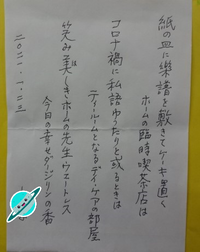 紙の皿に楽譜を敷きてケーキ置く
ホームの臨時喫茶店は
コロナ禍に私語ゆったりと或るときは
ティールームとなるデイ・ケアの部屋
笑み美しきホームの先生ウェートレス
今日の幸せダージリンの香